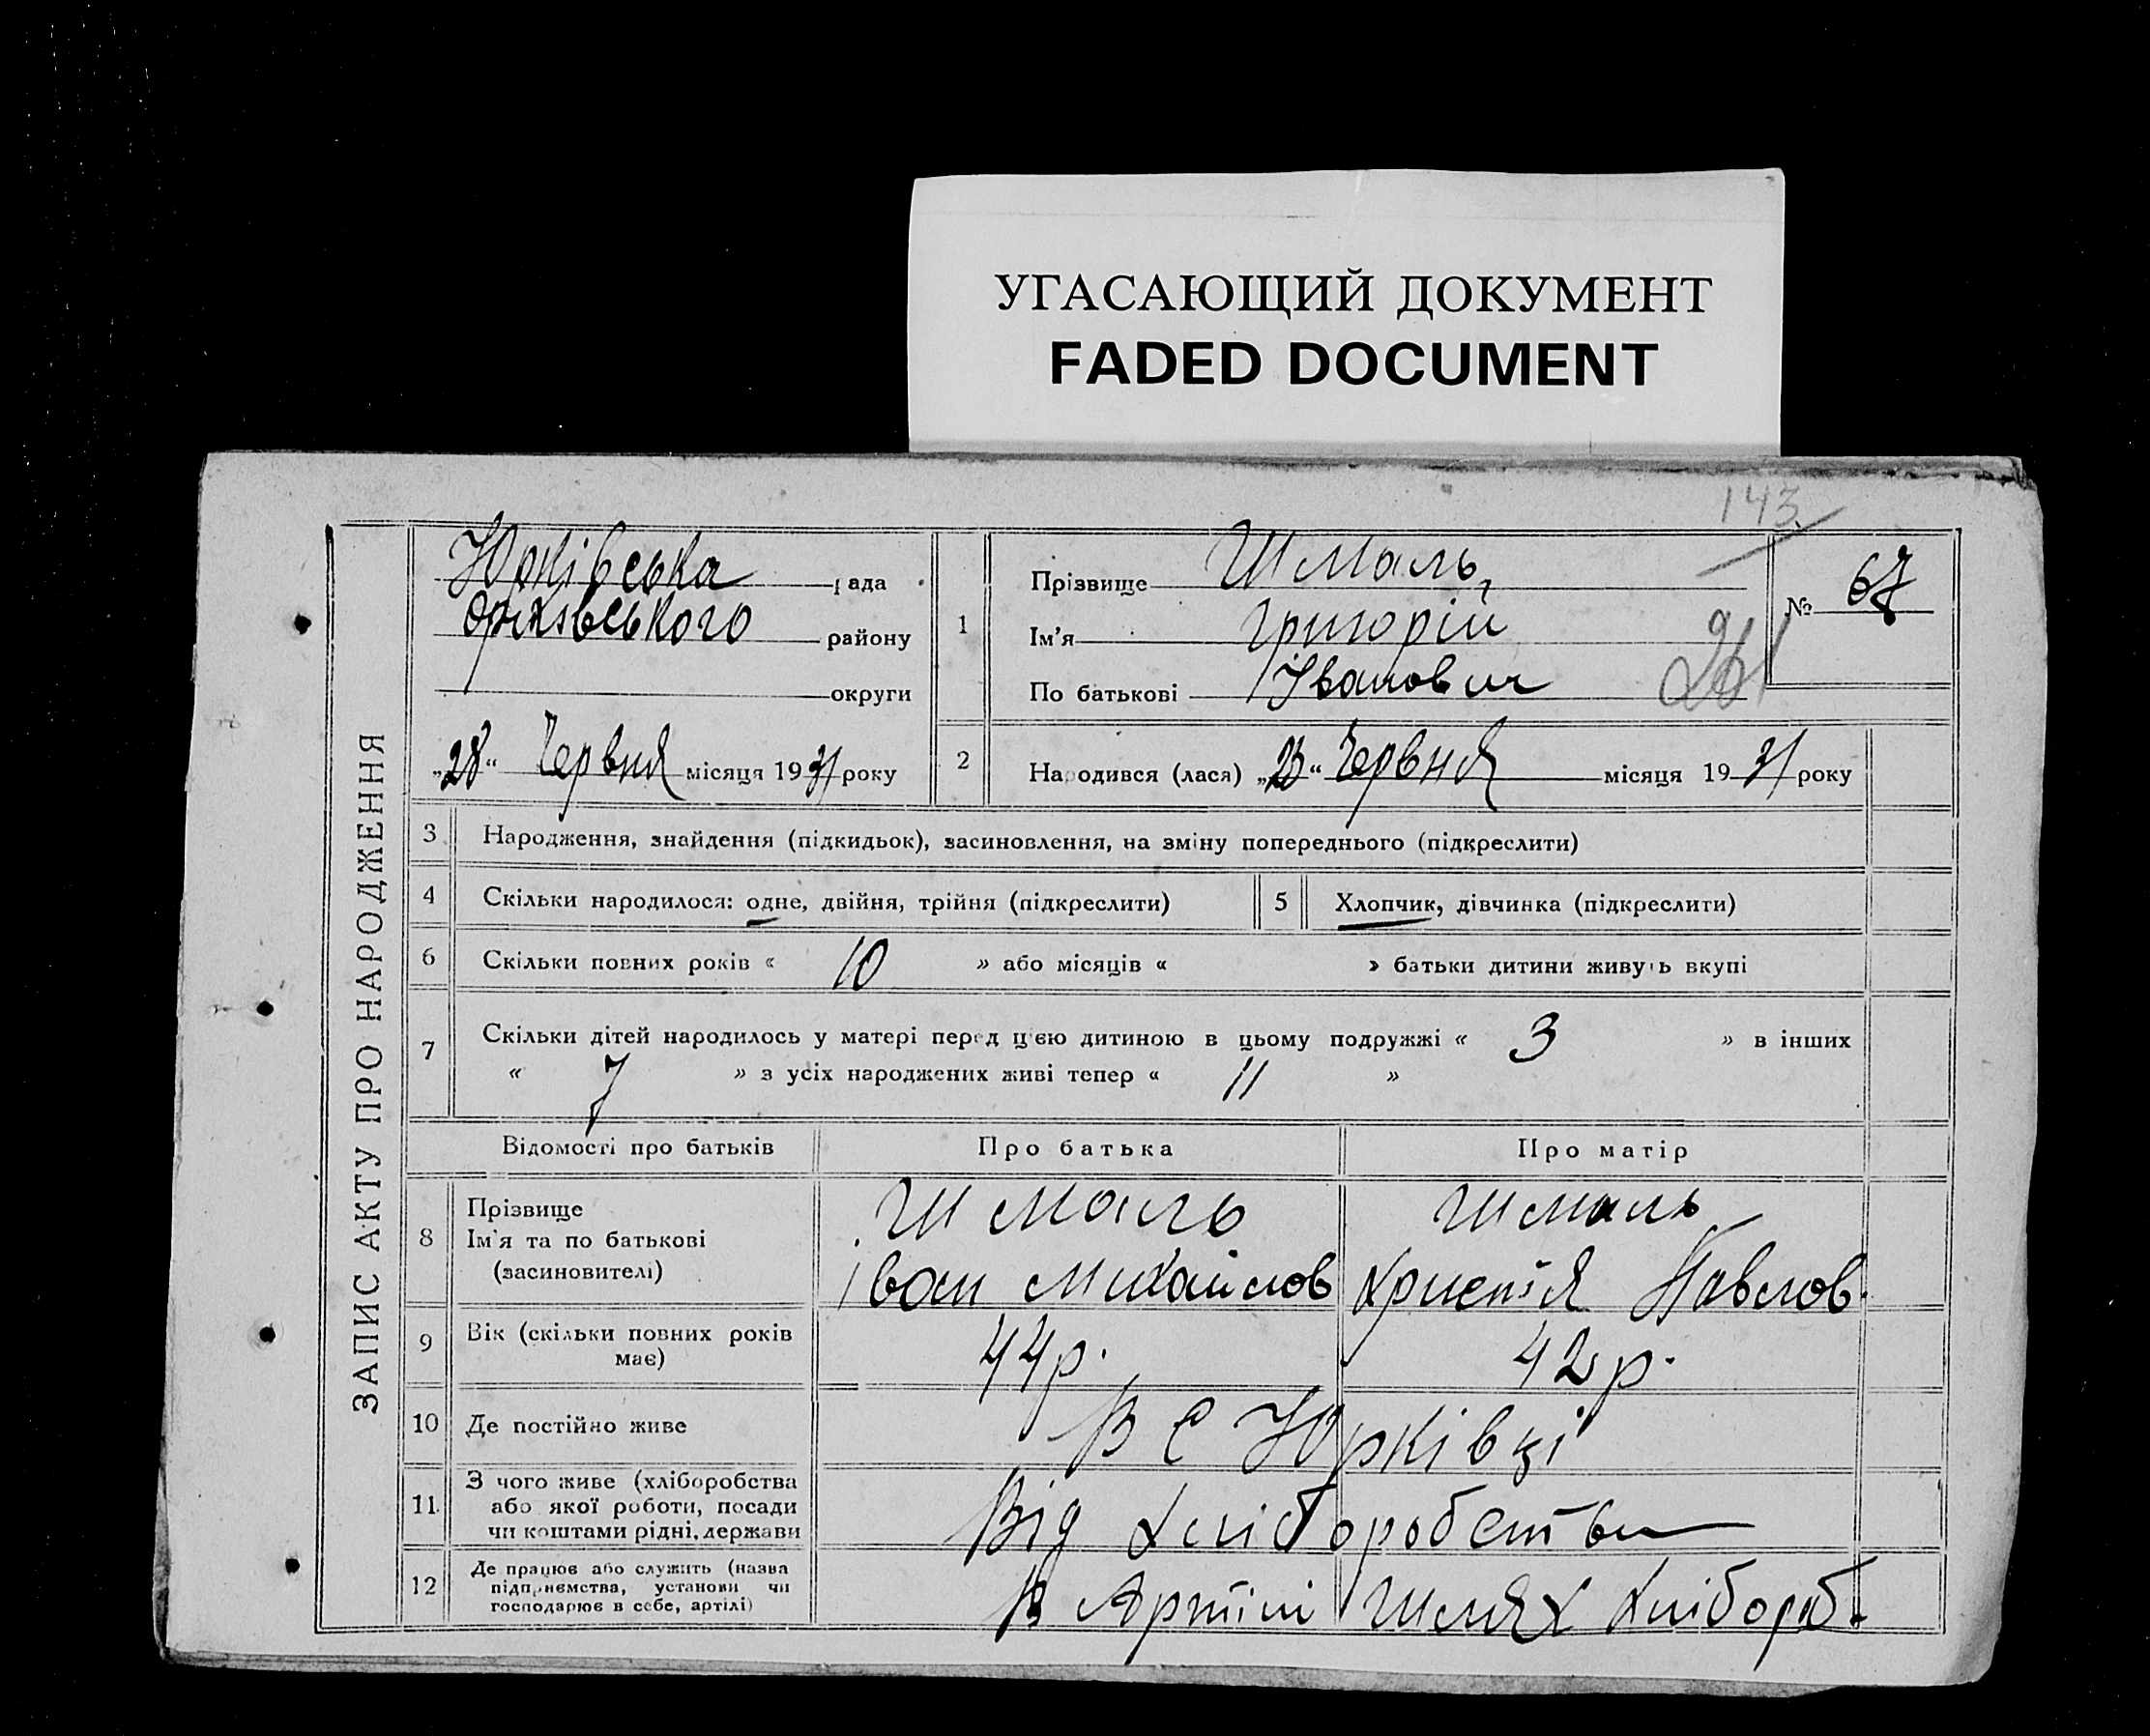 УГАСАЮЩИЙ ДОКУМЕНТ
FADED DOCUMENT
143
ЗАПИС АКТУ ПРО НАРОДЖЕННЯ
Юрківська рада
Оріхівського району
округи
„28“ Червня місяця 1931 року
1
Прізвище Шмаль
Ім'я Григорій
По батькові Іванович
№ 67
2 Народився (лася) „23“ Червня місяця 1931 року
3 Народження, знайдення (підкидьок), засиновлення, на зміну попереднього (підкреслити)
4 Скільки народилося: одне, двійня, трійня (підкреслити) 5 Хлопчик, дівчинка (підкреслити)
6 Скільки повних років « 10 » або місяців « » батьки дитини живуть вкупі
7 Скільки дітей народилось у матері перед цією дитиною в цьому подружжі « 3 » в інших
« 7 » з усіх народжених живі тепер « 11 »
Відомості про батьків Про батька Про матір
8 Прізвище
Ім'я та по батькові
(засиновителі)
Шмаль
Іван Михайлов
Шмаль
Христія Павлов.
9 Вік (скільки повних років
має)
44 р. 42 р.
10 Де постійно живе В с Юрківці
11 З чого живе (хліборобства
або якої роботи, посади
чи коштами рідні, держави
Від хліборобства
12 Де працює або служить (назва
підприємства, установи чи
господарює в себе, артілі)
В Артілі Шлях хлібороб.